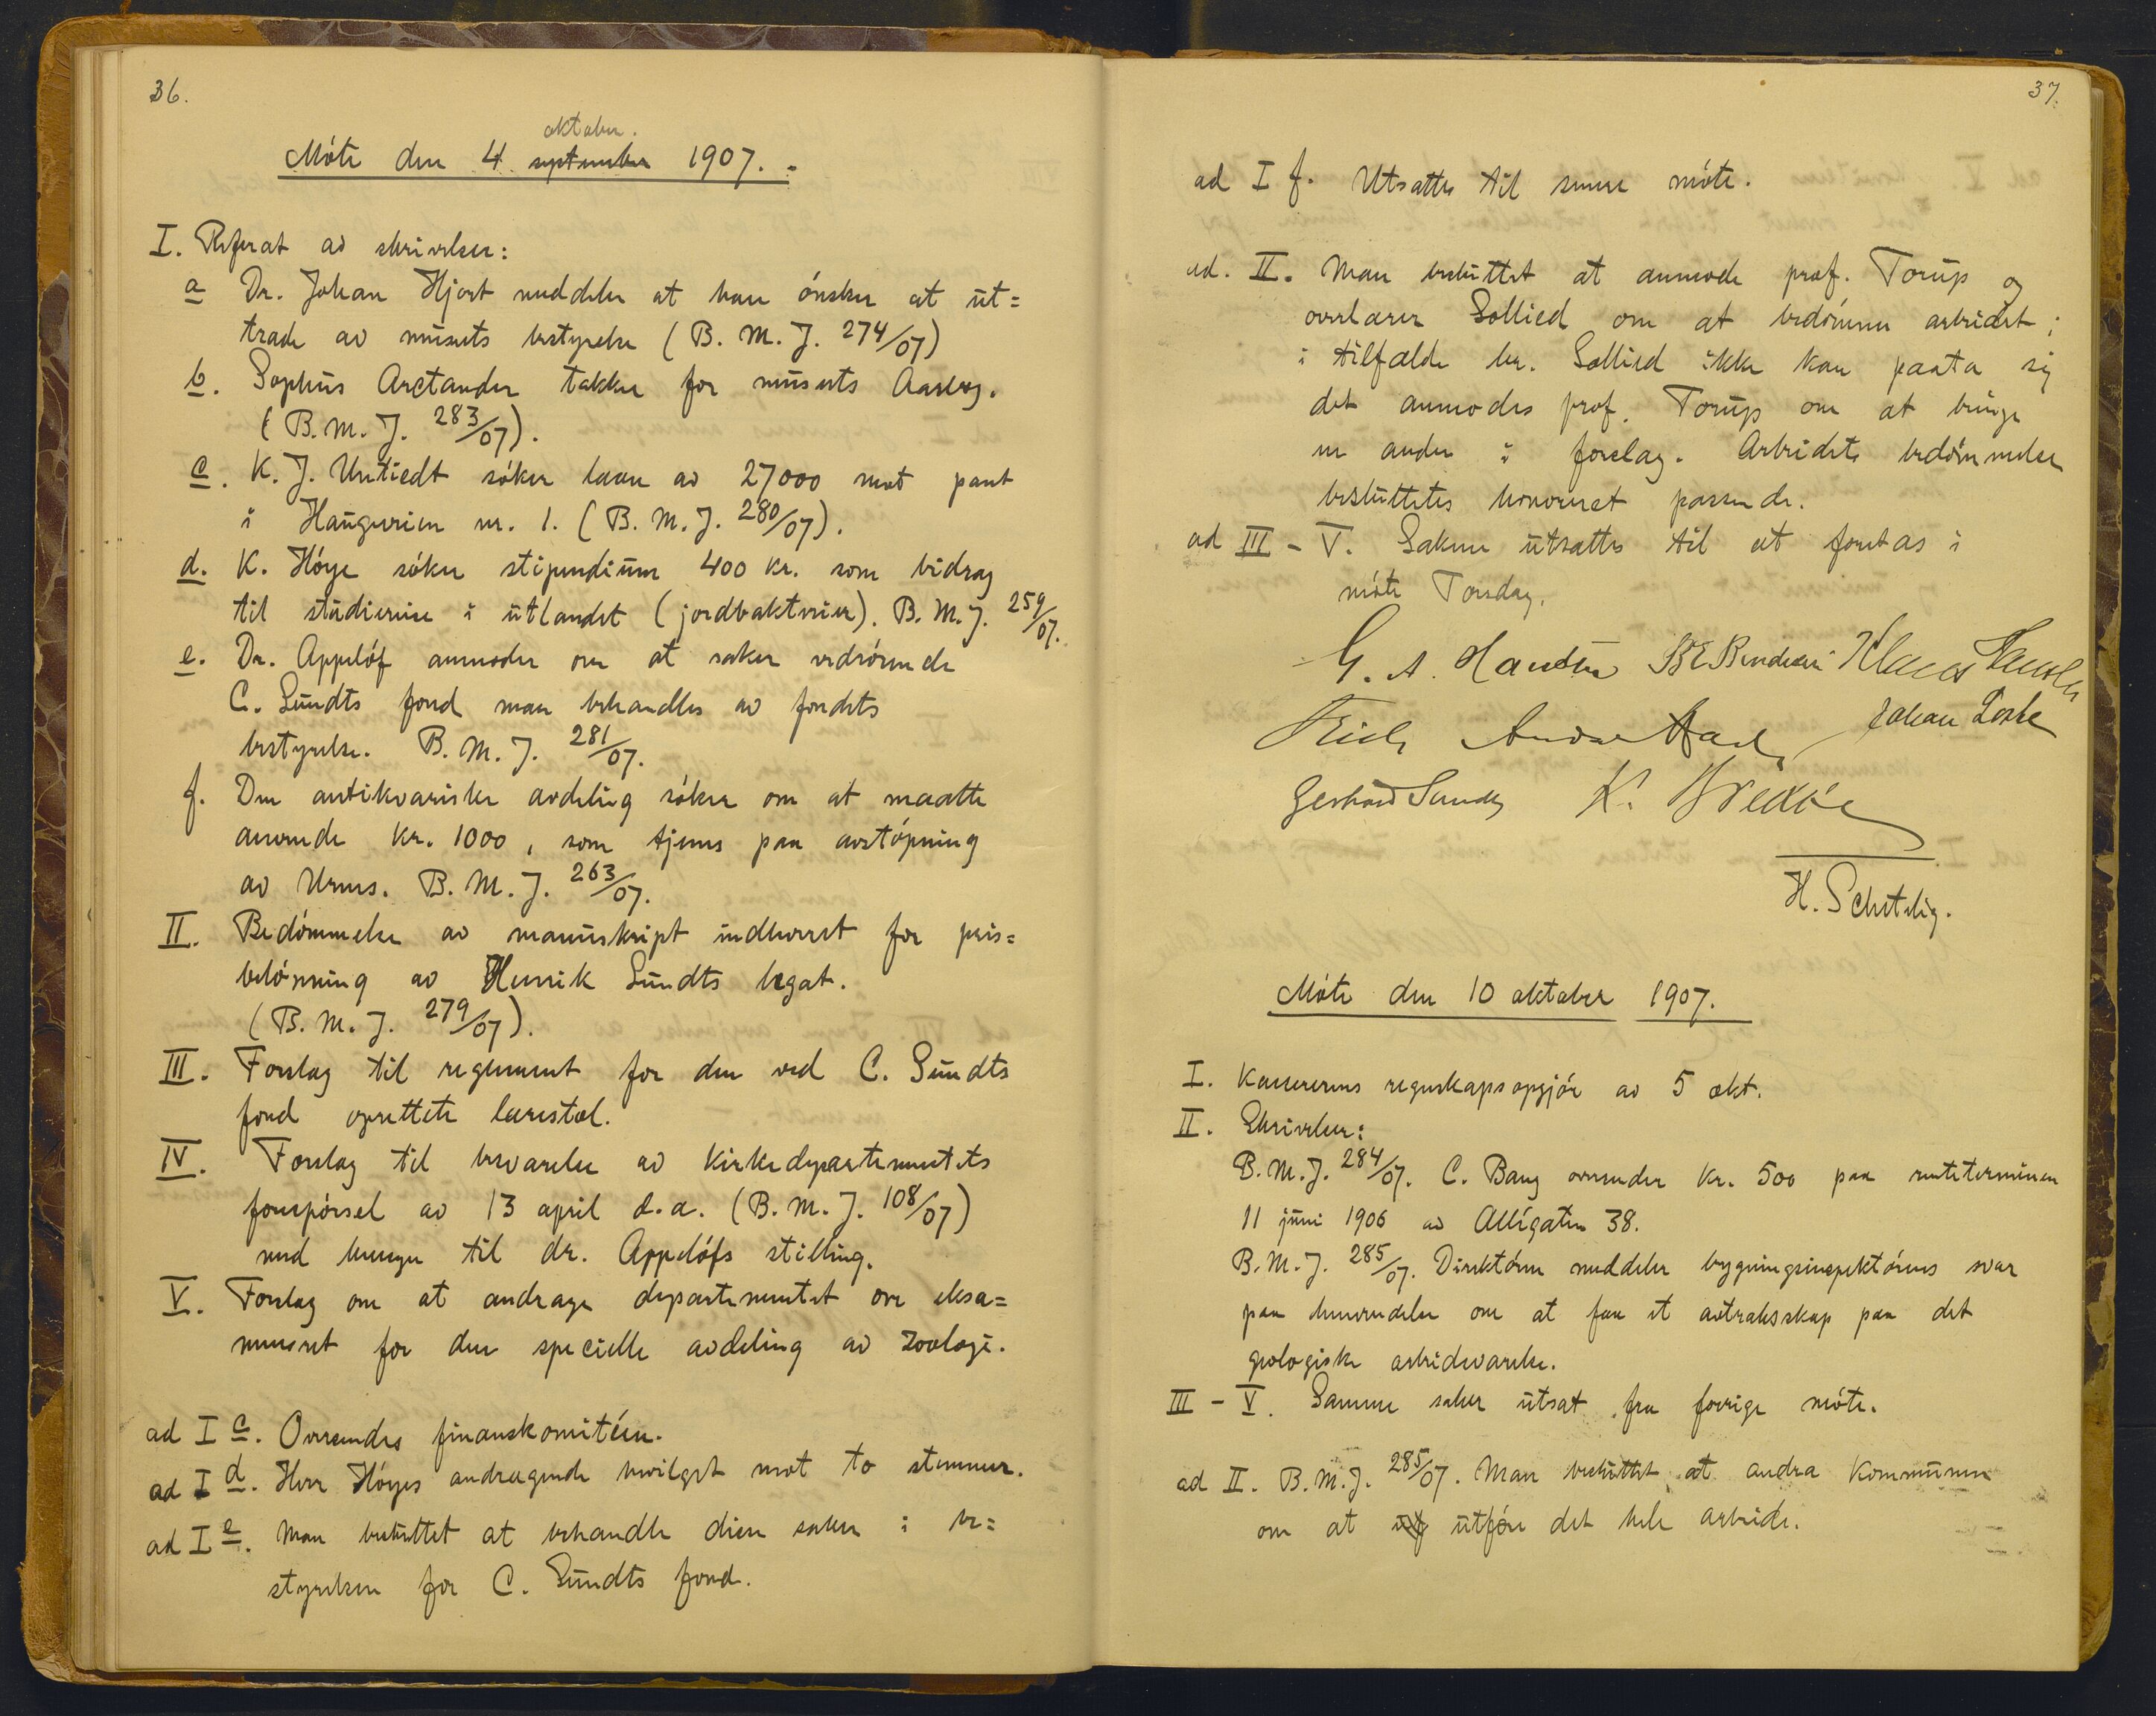 36.
oktober.
Móte den 4 september 1907.
I. Referat av skrivelser:
a Dr. Johan Hjort meddeler at han ónsker at ut=
træde av museets bestyrelse (B. M. J. 274/07)
b. Sophus Arctander takker for museets Aarbog.
(B. M. J. 283/07).
c. K. J. Untiedt sóker laan av 27000 mot pant
i Haugveien nr. 1. (B. M. J. 280/07).
d. K. Hóye sóker stipendium 400 kr. som bidrag
til studiereise i utlandet (jordbakterier). B. M. J. 259/07.
e. Dr. Appelóf anmoder om at saker vedrórende
C. Sundts fond maa behandles av fondets
bestyrelse. B. M. J. 281/07.
f. Den antikvariske avdeling sóker om at maatte
anvende kr. 1000, som tjenes paa avstópning
av Urnes. B. M. J. 263/07.
II. Bedómmelse av manuskript indleveret for pris=
belónning av Henrik Sundts legat.
(B. M. J. 279/07).
III. Forslag til reglement for den ved C. Sundts
fond oprettete lærestol.
IV. Forslag til besvarelse av kirkedepartementets
forespórsel av 13 april d. a. (B. M. J. 108/07)
med hensyn til dr. Appelófs stilling.
V. Forslag om at andrage departementet om eksa=
mensret for den specielle avdeling av zoologi.
ad I c. Oversendes finanskomitéen.
ad I d. Herr Hóyes andragende bevilget mot to stemmer.
ad I e. Man besluttet at behandle disse saker i be=
styrelsen for C. Sundts fond.
37.
ad I f. Utsattes til senere móte.
ad. II. Man besluttet at anmode prof. Torup og
overlærer Sollied om at bedómme arbeidet;
i tilfælde hr. Sollied ikke kan paata sig
det anmodes prof. Torup om at bringe
en anden i forslag. Arbeidets bedómmelse
besluttetes honoreret passende.
ad III - V. Sakene utsattes til at foretas i
móte Torsdag.
G. A. Hansen B E Bendixen Klaus Hanssen
Friele Johan Loske
Gerhard Sundt K.
H. Schetelig.
Móte den 10 oktober 1907.
I. Kassererens regnskapsopgjór av 5 okt.
II. Skrivelser:
B. M. J. 284/07. C. Bang oversender kr. 500 paa renteterminen
11 juni 1906 av Allégaten 38.
B. M. J. 285/07. Direktóren meddeler bygningsinspektórens svar
paa henvendelse om at faa et avtræksskap paa det
geologiske arbeidsværelse.
III - V. Samme saker utsat fra forrige móte.
ad II. B. M. J. 285/07. Man besluttet at andra kommunen
om at utfóre det hele arbeide.